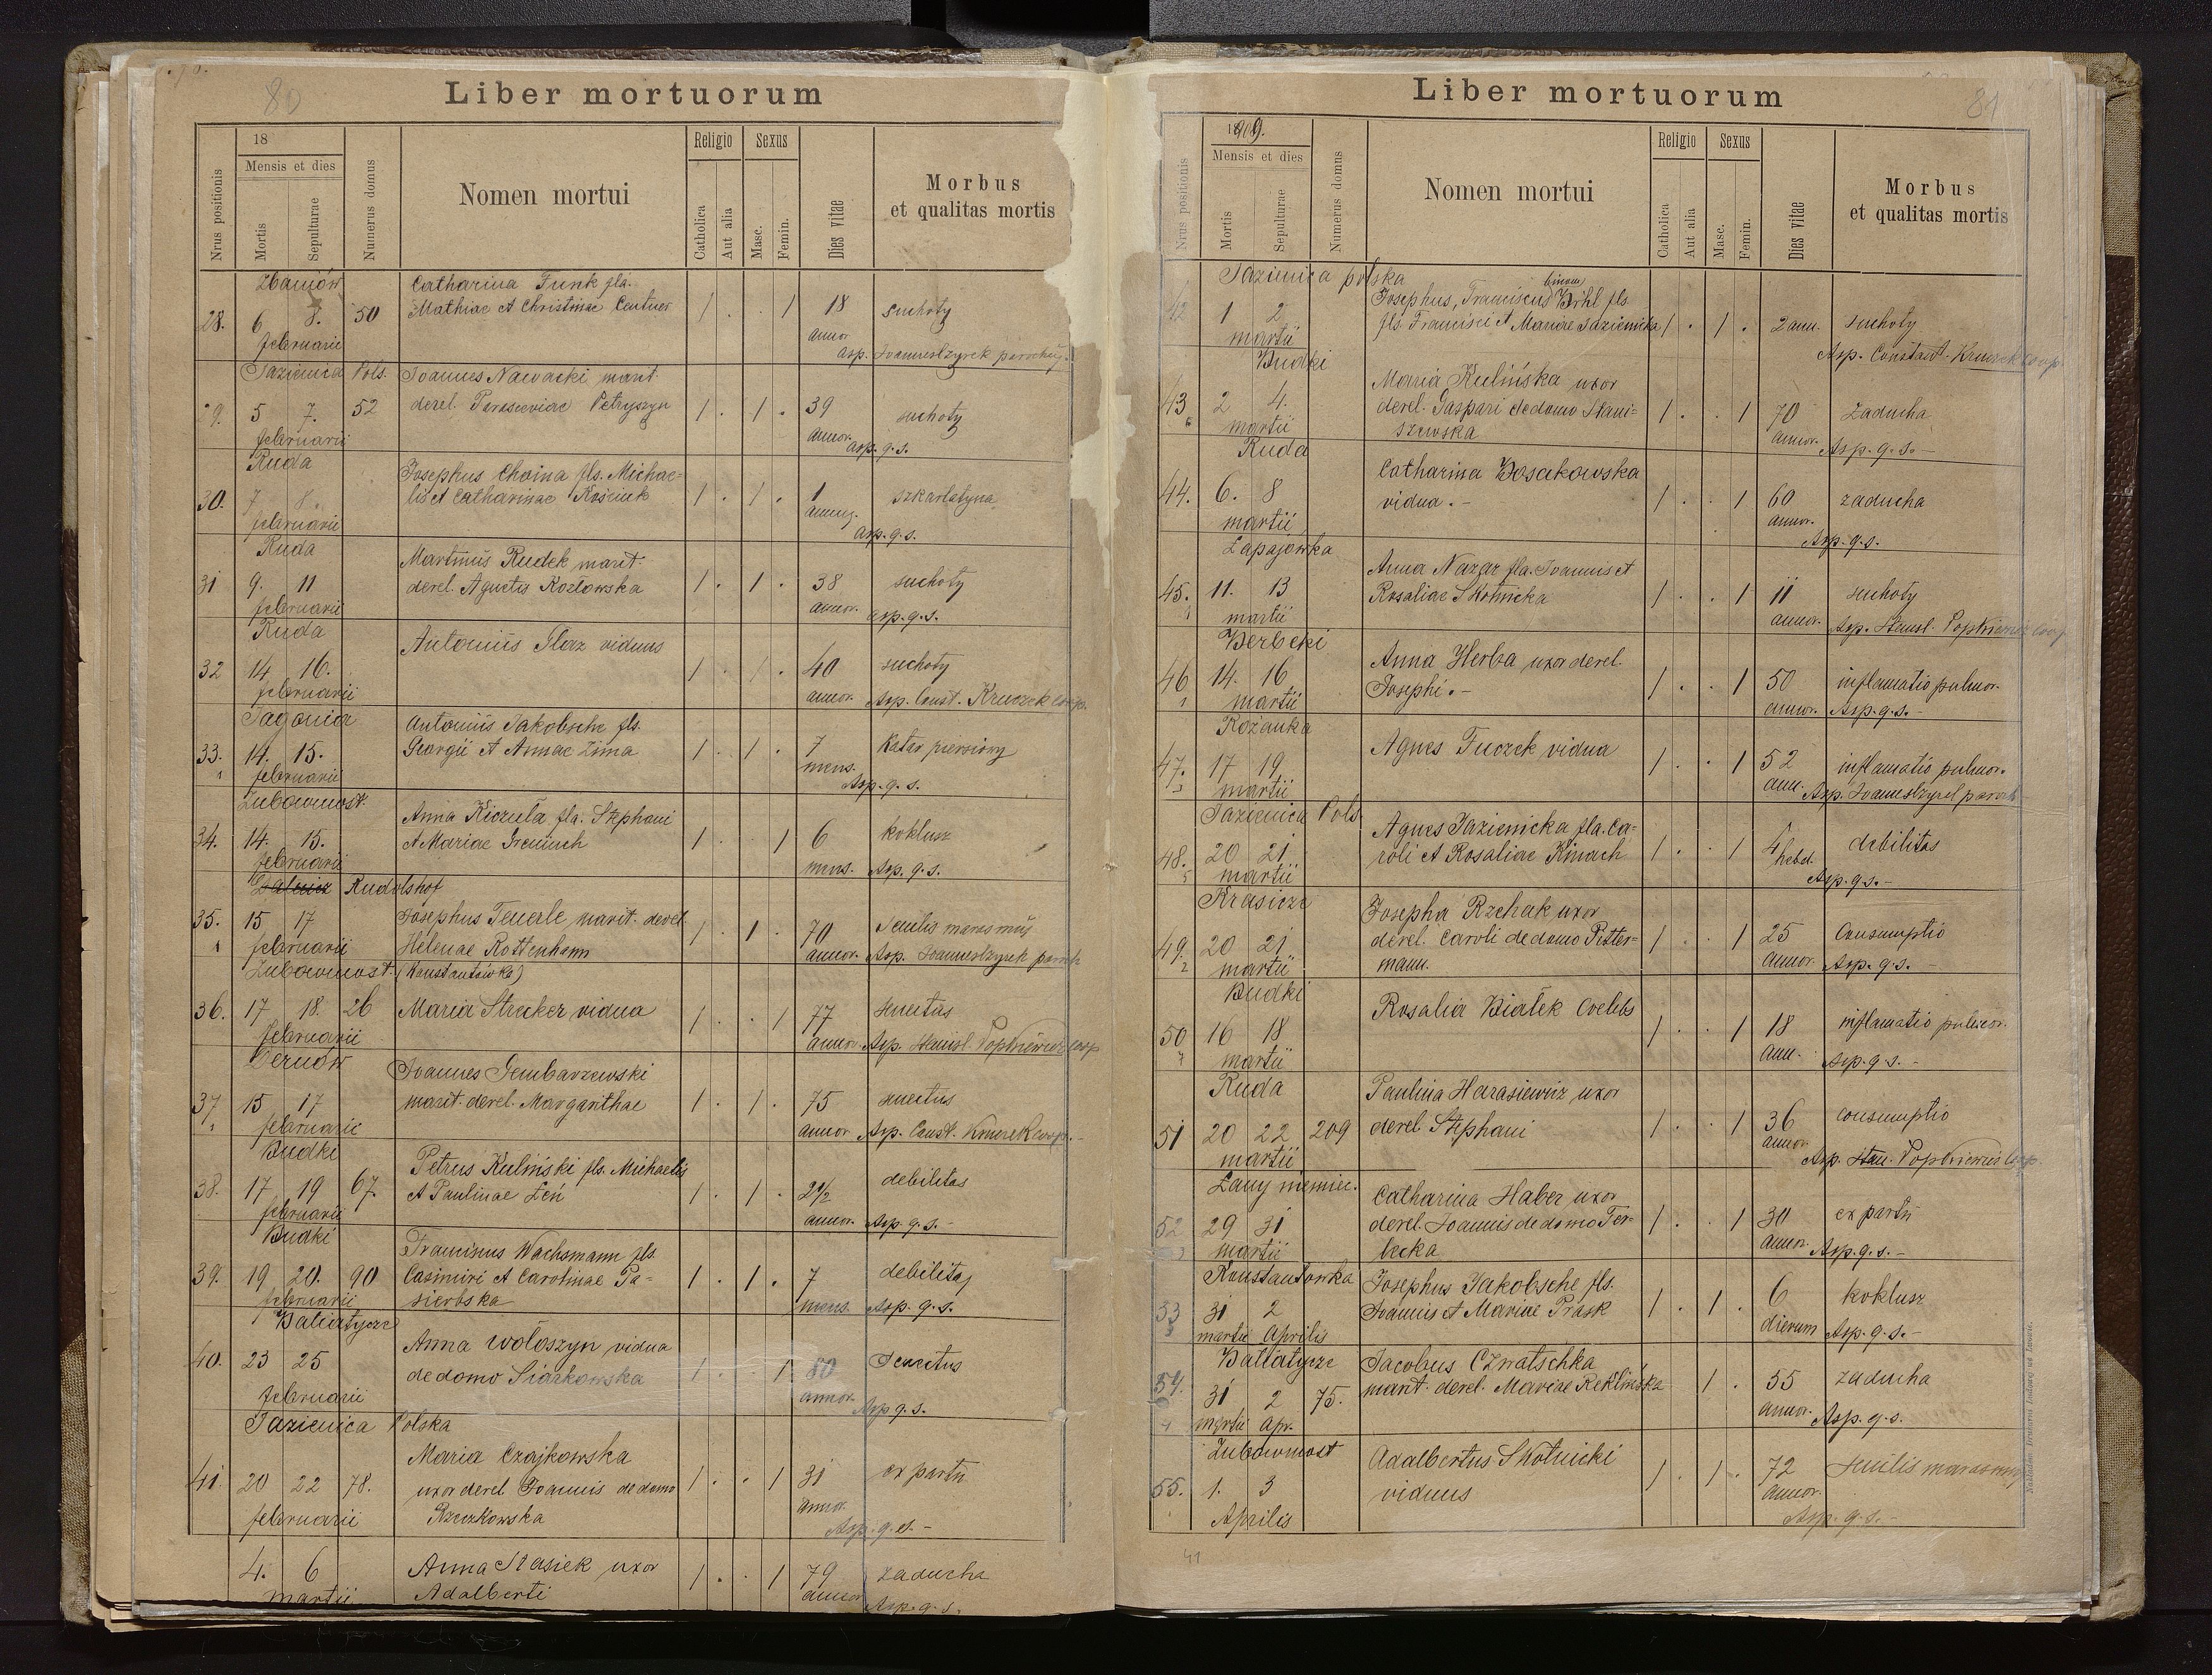 80
Liber mortuorum
Nrus positionis
18
Mensis et dies
Mortis
Sepulturae
Numerus domus
Nomen mortui
Religio
Catholica
Aut alia
Sexus
Masc.
Femin.
Dies vitae
Morbus
et qualitas mortis
Catharina Funk fla.
28. 6 8. 50 Mathiae et Christinae Centner 1 . . 1 18 suchoty
februarii annor
asp. Joannes
Jazienica Pols. Joannes Nawacki marit.
29. 5 7. 52 derel. Parasceviae Petryszyn 1 . 1 . 39 suchoty
februarii annor. asp. q. s.
Ruda Josephus Chaina fls. Michae-
30. 7 8. lis et Catharinae Kościuk 1 . 1 . 1 szkarlatyna
februarii asp. q. s.
Ruda Martinus Rudek marit.
31 9. 11 derel. Agnetis Kozłowska 1 . 1 . 38 suchoty
februarii annor. asp. q. s.
Ruda Antonius viduus
32 14 16. 1 . 1 . 40 suchoty
februarii annor. Asp. Const. Kruczek coop.
Jagonia Antonius Jakobsche fls.
33. 14. 15. Georgii et Annae Zima 1 . 1 . 7 Katar piersiowy
februarii mens. Asp. q. s.
Żubowmost Anna Kiczuła fla. Stephani
34. 14. 15. et Mariae 1 . 1 6 koklusz
februarii mens. Asp. q. s.
Rudolshof
35. 15 17 Josephus Teuerle marit. derel. 1 . 1 . 70 Senilis marasmus
februarii Helenae Rottenhann annor. Asp. Joannes
Żubowmost (Konstantówka)
36. 17 18. 26 Maria Strecker vidua 1 . . 1 77 senectus
februarii annor. Asp. Stanisl. Popkiewicz coop
Dernów Joannes Gembarzewski
37 15 17 marit. derel. Margarithae 1 . 1 . 75 senectus
februarii annor Asp. Const. Kruczek coop. -
Budki Petrus Kuliński fls. Michaelis
38. 17 19 67. et Paulinae Łeń 1 . 1 . 2 1/2 debilitas
februarii annor. Asp. q. s. -
Budki Franciscus Wachsmann fls.
39. 19 20. 90 Casimiri et Carolinae Pa- 1 . 1 . 7 debilitas
februarii sierbska mens. Asp. q. s.
Batiatycze Anna Wołoszyn vidua
40. 23 25 de domo Siarkowska 1 . . 1 80 Senectus
februarii annor. Asp. q. s.
Jazienica Polska
Maria Czajkowska
41. 20 22 78. uxor derel. Joannis de domo 1 . . 1 31 ex partu
februarii Rzeczkowska annor. Asp. q. s. -
4. 6 Anna Stasiek uxor 1 . . 1 79 zaducha
martii Adalberti annor Asp. q. s.
81
Liber mortuorum
Nrus positionis
1909.
Mensis et dies
Mortis
Sepulturae
Numerus domus
Nomen mortui
Religio
Catholica
Aut alia
Sexus
Masc.
Femin.
Dies vitae
Morbus
et qualitas mortis
Jazienica polska
Josephus, Franciscus (binom.) fls
42 1 2 fls. Francisci et Mariae Jazienicka 1 . 1 . 2 ann. suchoty
martii Asp. Constant. Kruczek coop.
Budki Maria Kulińska uxor
43 2 4. derel. Gaspari de domo Stani- 1 . . 1 70 zaducha
martii szewska annor. Asp. q. s. -
Ruda Catharina Bosakowska
44. 6. 8 vidua. - 1 . . 1 60 zaducha
martii annor. Asp. q. s.
Łapajówka Anna Nazar fla. Joannis et
45. 11. 13 Rosaliae Skotnicka 1 . . 1 11 suchoty
martii annor. Asp. Stanisl. Popkiewicz coop
Berbeki Anna Herba uxor derel.
46 14. 16 Josephi. - 1 . . 1 50 inflamatio pulmor.
martii annor. Asp. q. s. -
Rożanka
47. 17 19 Agnes Tuczek vidua 1 . . 1 52 inflamatio pulmor.
martii ann. Asp. Joannes
Jazienica Pols Agnes Jazienicka fla. Ca-
48. 20 21 roli et Rosaliae Kinach 1 . . 1 4 debilitas
martii hebd. Asp. q. s. -
Krasicze Josepha Rzehak uxor
49. 20 21 derel. Caroli de domo Pitter- 1 . . 1 25 Consumptio
martii mann. annor. Asp. q. s. -
Budki Rosalia Białek Coelebs
50 16 18 1 . . 1 18 inflamatio pulmor.
martii ann. Asp. q. s. -
Ruda Paulina Harasiewicz uxor
51 20 22 209 derel. Stephani 1 . . 1 36 consumptio
martii annor. Asp. Stan. Popkiewicz coop.
Łany niemiec. Catharina Haber uxor
52 29 31 derel. Joannis de domo Ter- 1 . . 1 30 ex partu
martii lecka annor. Asp. q. s. -
Konstantówka Josephus Jakobsche fls.
53 31 2 Joannis et Mariae Prask 1 . 1 . 6 koklusz
martii Aprilis dierum Asp. q. s. -
Batiatycze Jacobus Czwatschka
54. 31 2 75. marit. derel. Mariae Reklińska 1 . 55 zaducha
martii Apr. annor. Asp. q. s.
Żubowmost Adalbertus Skotnicki
55. 1. 3 viduus 1 . 1 . 72 Senilis marasmus
Aprilis annor. Asp. q. s. -
41